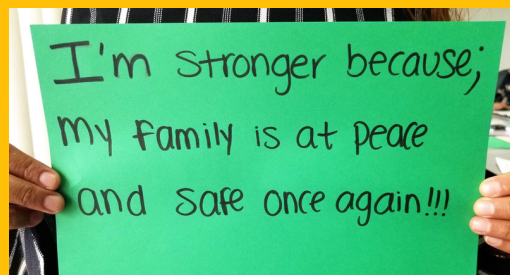 I'm stronger because;
my family is at peace
and safe once again!!!